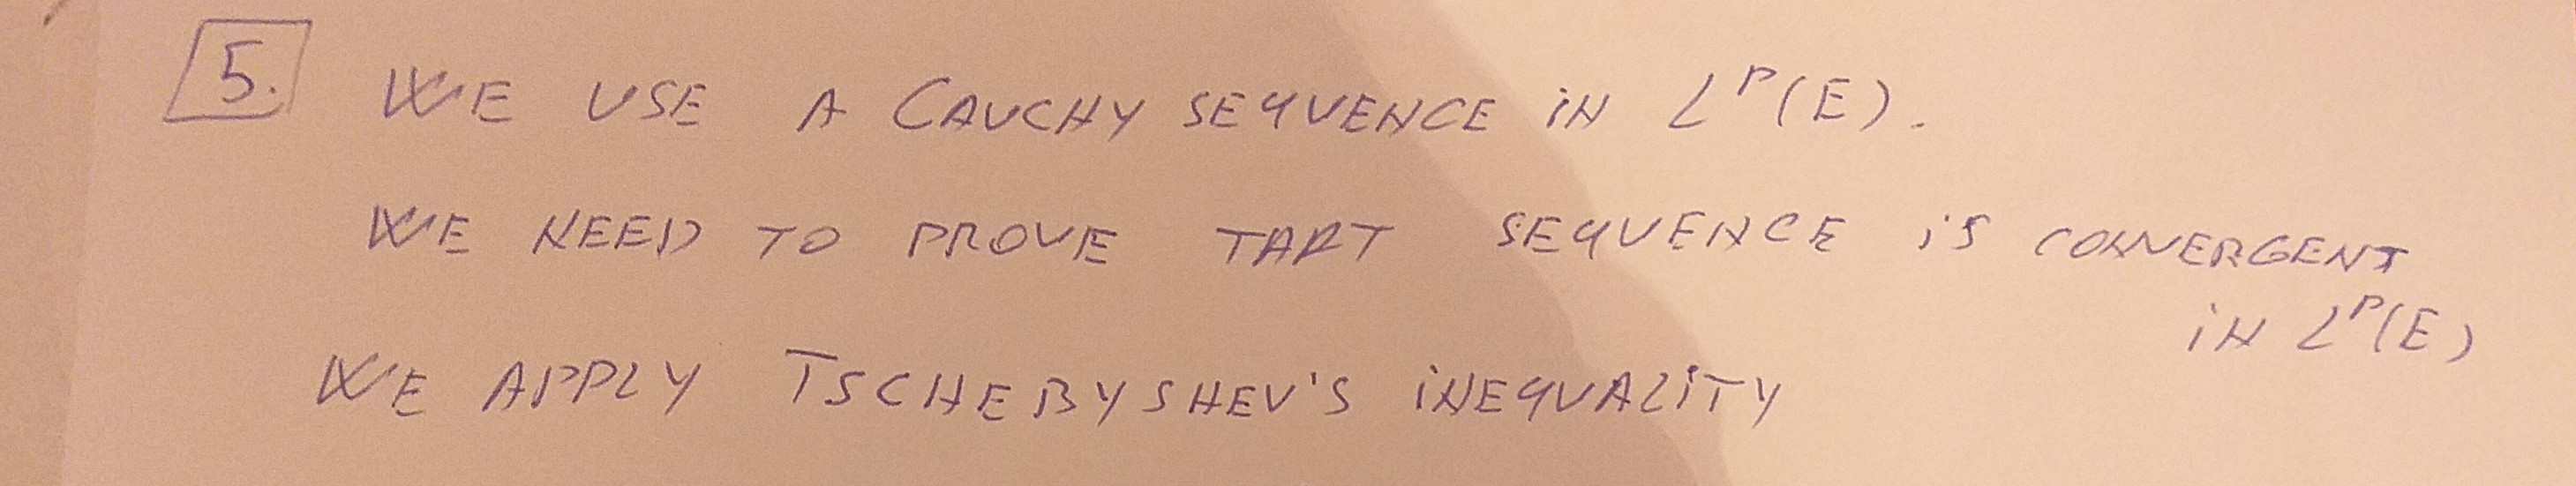 5. WE USE A CAUCHY SEQUENCE iN L^P(E).
WE NEED TO PROVE TART SEQUENCE iS CONVERGENT
iN L^P(E)
WE APPLY TSCHEBYSHEV'S iNEQUALiTY